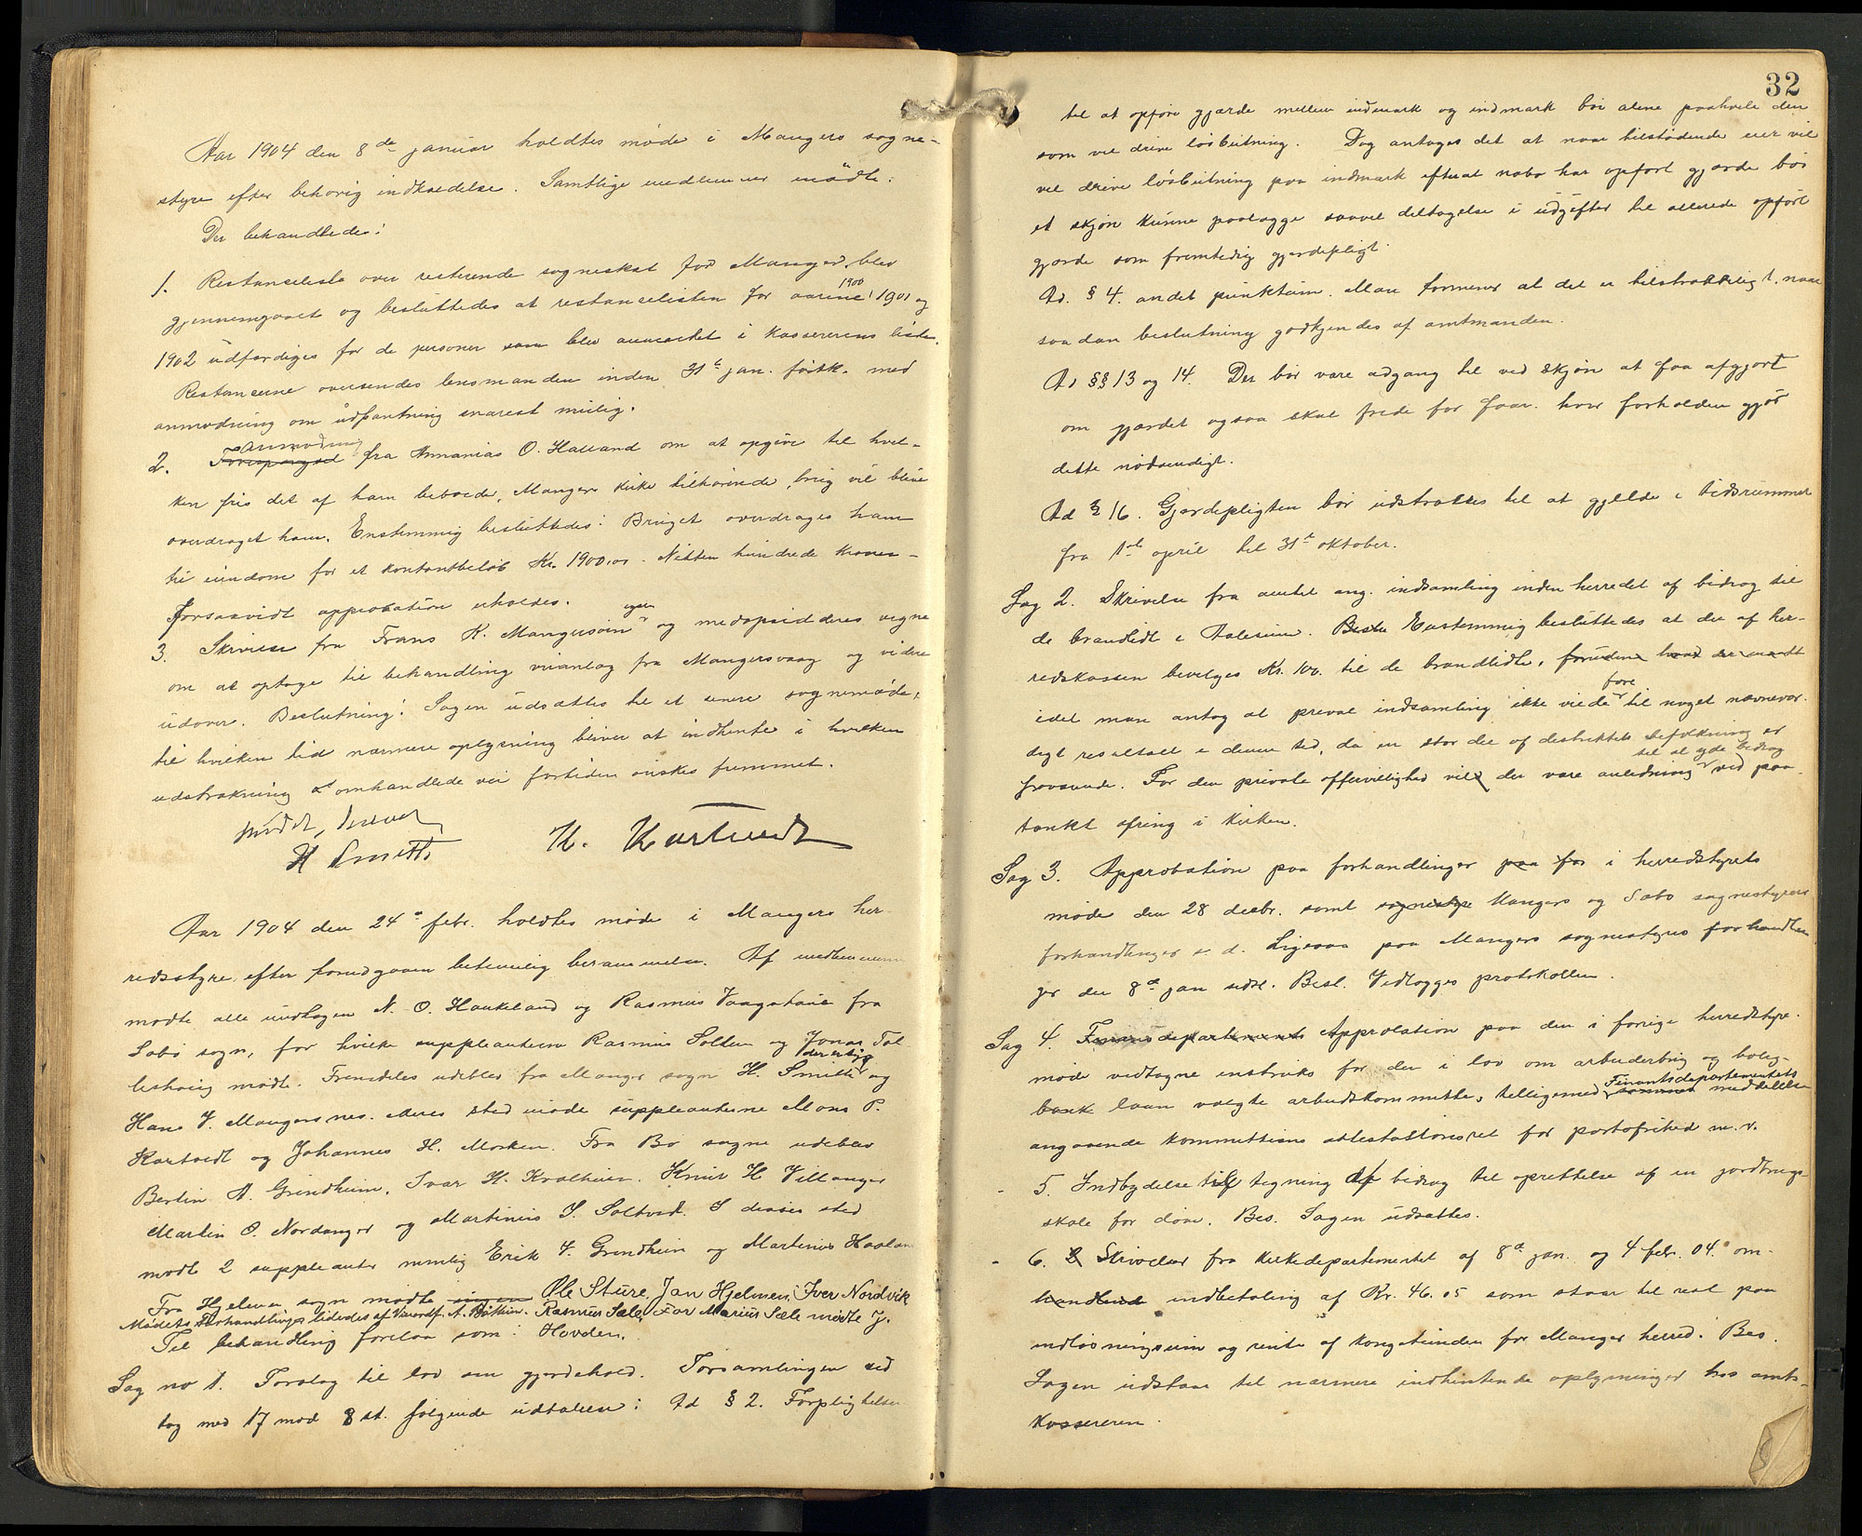 Aar 1904 den 8de januar holdtes møde i Mangers sogne-
styre efter behørig indkaldelse. Samtlige medlemmer mødte.
Der behandledes:
1. Restanceliste over resterende sogneskat for Manger blev
gjennemgaaet og besluttedes at restancelisten for aarene 1900 1901 og
1902 udfærdiges for de personer som blev anmerket i kassererens liste.
Restancerne oversendes lensmanden inden 31te jan. førstk. med
anmodning om udpantning snarest mulig.
2. Forespørgsel Anmodning fra Annanias O. Halland om at opgive til hvil-
ken pris det af ham beboede, Mangers kirke tilhørende, brug vil blive
overdraget ham. Enstemmig besluttedes: Bruget overdrages ham
til eiendom for et kontantbeløb Kr. 1900,00 - Nitten hundrede kroner -
forsaavidt approbation erholdes.
3. Skrivelse fra Frans K. Mangersnes egen og medopsidderes vegne
om at optage til behandling veianlæg fra Mangersvaag og videre
udover. Beslutning: Sagen udsættes til et senere sognemøde,
til hvilken tid nærmere oplysning bliver at indhente i hvilken
udstrækning omhandlede vei fortiden ønskes fremmet.
Mødet hævet
H Smith K. Kartveidt
Aar 1904 den 24e febr. holdtes møde i Mangers her-
redsstyre efter forudgaaen betimelig berammelse. Af medlemmerne
mødte alle undtagen N. O. Haukeland og Rasmus Vaagenes fra
Sæbø sogn, for hvilke suppleanterne Rasmus Soltun og Jonas Tof
mødte. Fremdeles udeblev fra Manger sogn H. Smith og
Hans J. Mangersnes. deres sted møde suppleanterne Mons P.
Kartveit og Johannes H. Morken. Fra Bø sogne udeblev
Bertin A. Grindheim, Ivar H. Kvalheim. Knut H Villanger
Martin O. Nordanger og Martinus S. Soltvedt. I disses sted
mødt 2 suppleanter nemlig Erik J. Grindheim og Martinus Haaland
Fra Hjelmen sogn mødte ingen Ole Sture, Jan Hjelmen, Iver Nordvik
Mødets forhandlinger lededes af Viceordf. A. Rasmus Sæle, For Marius Sæle mødte J.
Til behandling forelaa som: Hovden.
Sag no 1. Forslag til lov om gjærdehold. Forsamlingen ved
tog med 17 mod 8 st. følgende udtalelse: Ad § 2. Forpligtelsen
32
til at opføre gjærde mellem indmark og indmark bør alene paahvile den
som vil drive løsbeitning. Dog antages det at naar tilstødende eier vil
vil drive løsbeitning paa indmark efterat nabo har opført gjærde bør
et skjøn kunne paalægge saavel deltagelse i udgifter til allerede opført
gjærde som fremtidig gjærdepligt.
Ad. § 4. andet punktum. Man formener at det er tilstrækkeligt, naar
saadan beslutning godkjendes af amtmanden.
Ad §§ 13 og 14. Der bør være adgang til ved skjøn at faa afgjort
om gjærdet ogsaa skal frede for faar. hvor forholden gjør
dette nødvendigt.
Ad § 16. Gjærdepligten bør udstrækkes til at gjelde i tidsrummet
fra 1ste april til 31te oktober.
Sag 2. Skrivelse fra amtet ang. indsamling inden herredet af bidrag til
de brandlidte i Aalesund. Beslu Enstemmig besluttedes at der af her-
redskassen bevilges Kr. 100. til de brandlidte, foruden hvad der maatte
idet man antog at privat indsamling ikke vilde føre til noget nævnevær-
digt resultat i denne tid, da en stor del af distriktets befolkning er
fraværende. For den private offervillighed vil der være anledning til at yde bidrag ved paa-
tænkt ofring i kirken.
Sag 3. Approbation paa forhandlinger paa for i herredstyrets
møde den 28 decbr. samt sognestyre Mangers og Sæbø sognestyrers
forhandlinger s. d. Ligesaa paa Mangers sognestyres forhandlin-
ger den 8de jan sidst. Besl. Vedlægges protokollen.
Sag 4. Finansdepartements Approbation paa den i forrige herredstyre-
møde vedtagne instruks for den i lov om arbeiderbrug og bolig-
bank laan valgte arbeidskommitte, tilligemed Finantsdepartementets meddelelse
angaaende kommitteens attestationsret for portofrihed m. v.
- 5. Indbydelse til tegning af bidrag til oprettelse af en jordbrugs-
skole for døve. Bes. Sagen udsættes.
- 6. Skrivelser fra kirkedepartementet af 8de jan. og 4 febr. 04. om-
handlende indbetaling af Kr. 46.05 som staar til rest paa
indløsningssum og rente af kongetienden for Manger herred. Bes.
Sagen udstaar til nærmere indhentende oplysninger hos amts-
kassereren.